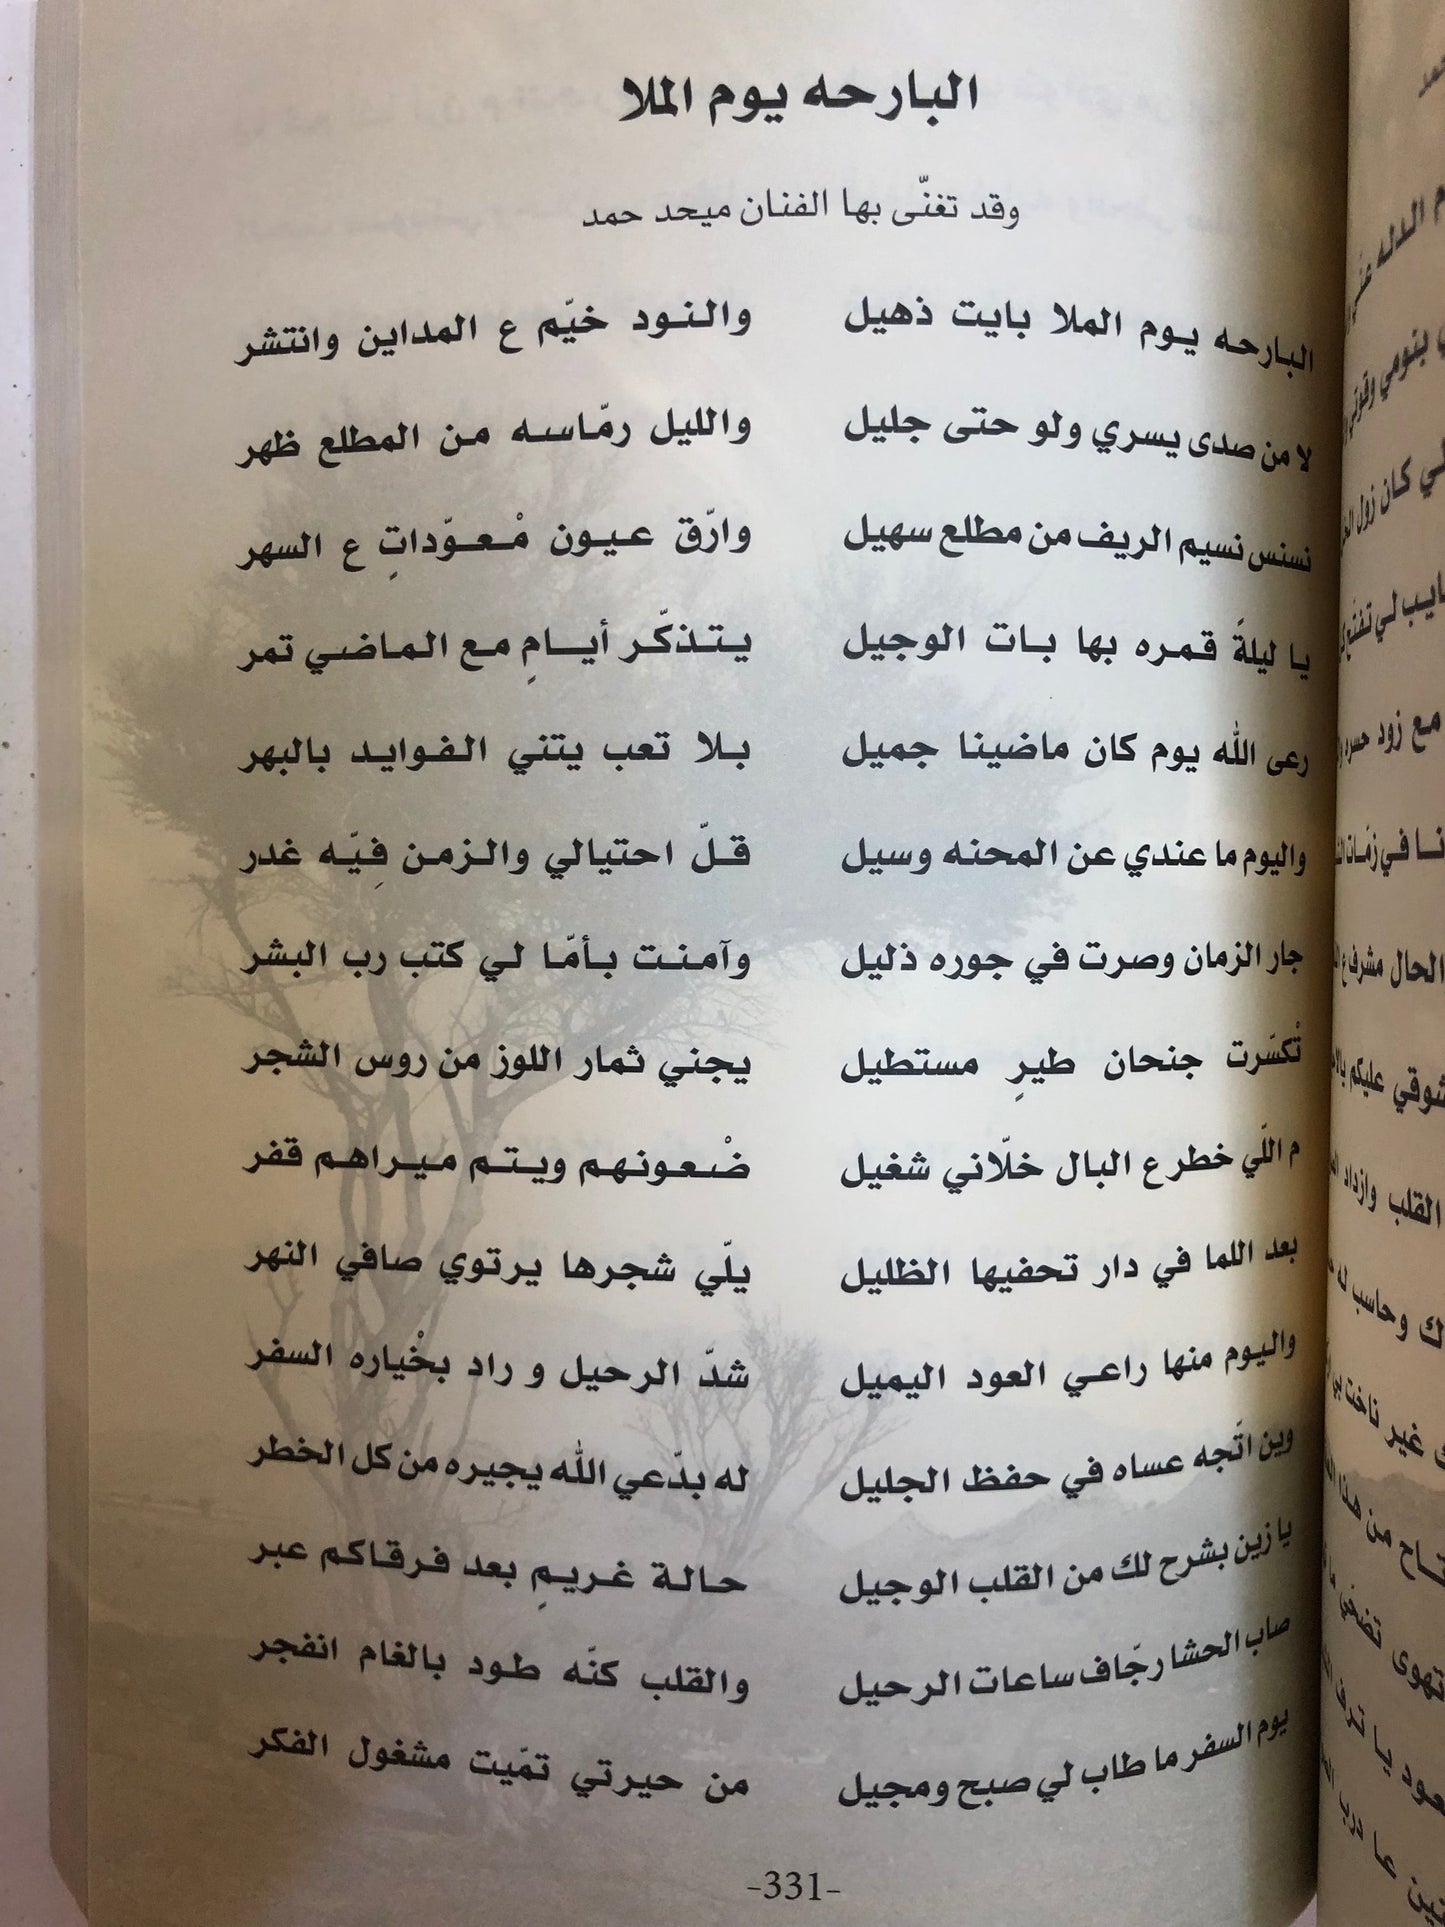 البارحه يوم الملا
وقد تغنّى بها الفنان ميحد حمد
البارحه يوم الملا بايت ذهيل والنود خيّم ع المداين وانتشر
لا من صدى يسري ولو حتى جليل والليل رمّاسه من المطلع ظهر
نسنس نسيم الريف من مطلع سهيل وارّق عيون مْعوّداتٍ ع السهر
يا ليلةً قمره بها بات الوجيل يتذكّر أيامٍ مع الماضي تمر
رعى الله يوم كان ماضينا جميل بلا تعب يتني الفوايد بالبهر
واليوم ما عندي عن المحنه وسيل قلّ احتيالي والزمن فِيّه غدر
جار الزمان وصرت في جوره ذليل وآمنت بأمّا لي كتب رب البشر
تْكسّرت جنحان طيرٍ مستطيل يجني ثمار اللوز من روس الشجر
م اللّي خطر ع البال خلّاني شغيل ضْعونهم ويتم ميراهم قفر
بعد اللما في دار تحفيها الظليل يلّي شجرها يرتوي صافي النهر
واليوم منها راعي العود اليميل شدّ الرحيل و راد بخْياره السفر
وين اتّجه عساه في حفظ الجليل له بدّعي الله يجيره من كل الخطر
يا زين بشرح لك من القلب الوجيل حالة غريمٍ بعد فرقاكم عبر
صاب الحشا رجّاف ساعات الرحيل والقلب كنّه طود بالغام انفجر
يوم السفر ما طاب لي صبح ومجيل من حيرتي تمّيت مشغول الفكر
-331-